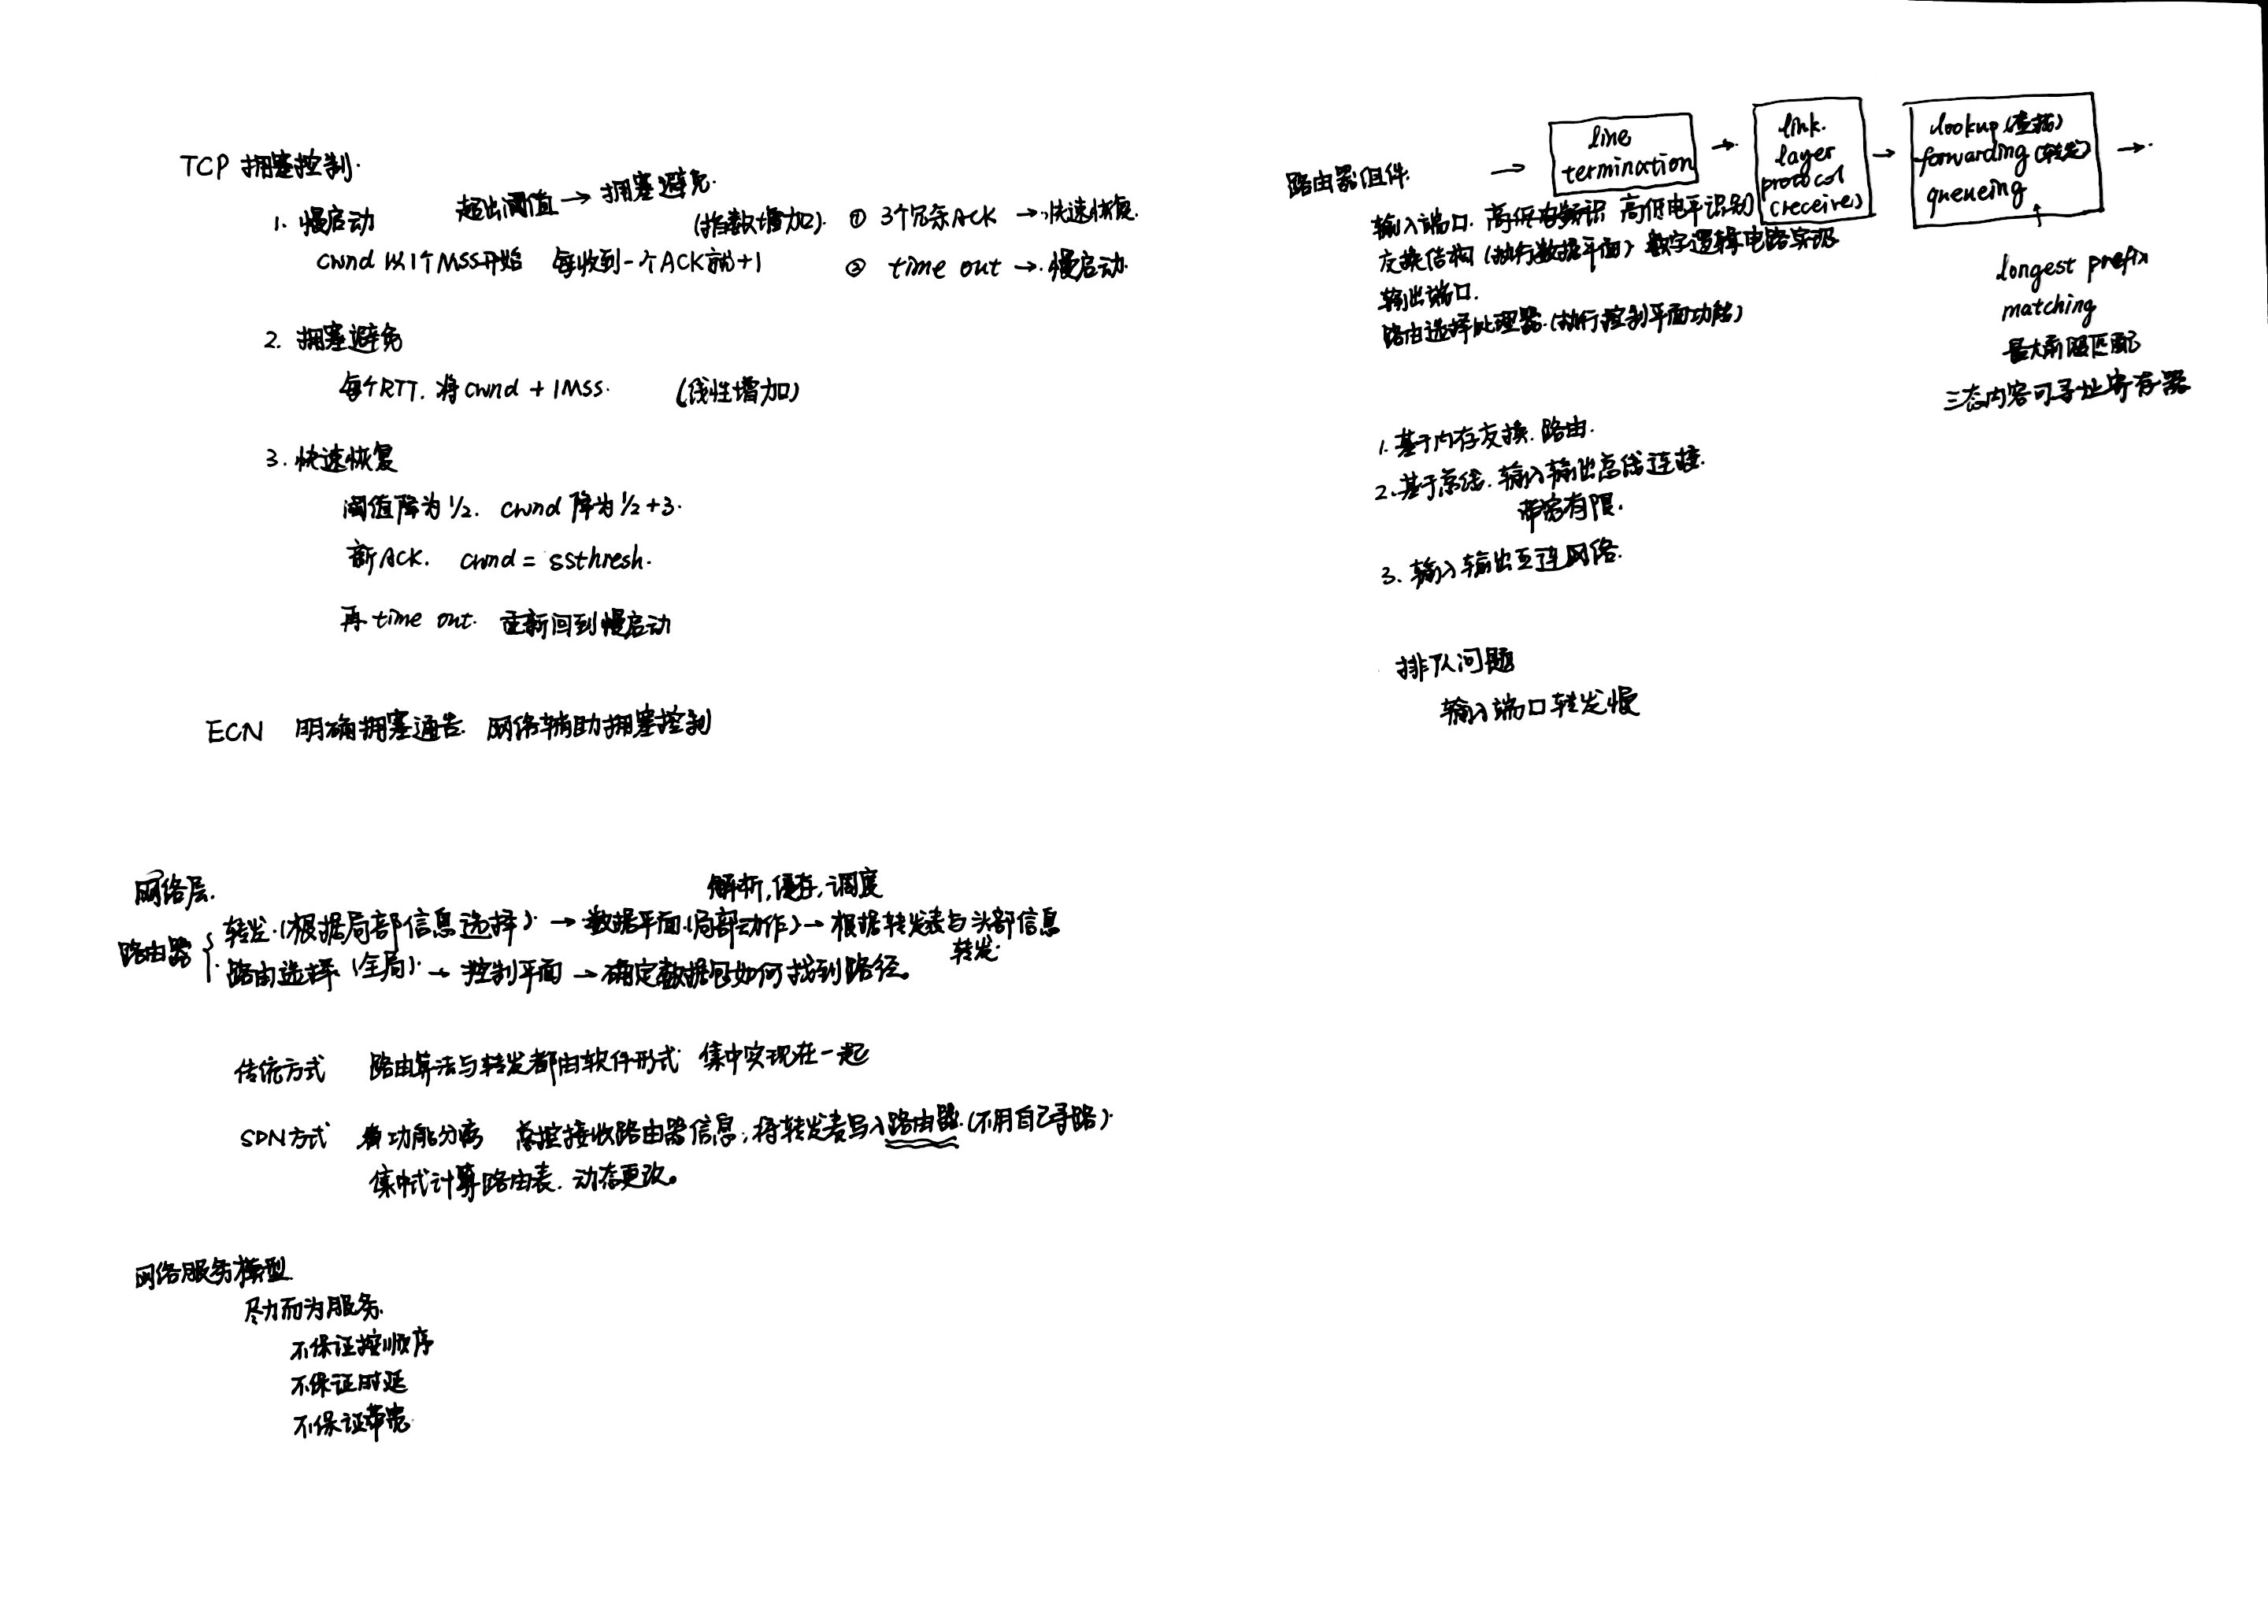 TCP 拥塞控制.
超出阈值 → 拥塞避免.
1. 慢启动 (指数增加). ① 3个冗余ACK → 快速恢复.
cwnd 以1个MSS开始 每收到一个ACK就+1 ② time out → 慢启动.
2. 拥塞避免
每个RTT. 将cwnd + 1MSS. (线性增加)
3. 快速恢复
阈值降为1/2. cwnd 降为1/2+3.
新ACK. cwnd = ssthresh.
再time out. 重新回到慢启动
ECN 明确拥塞通告. 网络辅助拥塞控制
网络层.
解析,缓存,调度
路由器
转发.(根据局部信息选择). → 数据平面.(局部动作) → 根据转发表与头部信息
转发.
路由选择.(全局). → 控制平面 → 确定数据包如何找到路径。
传统方式 路由算法与转发都由软件形式 集中实现在一起
SDN方式 功能分离 总控接收路由器信息,将转发表写入路由器.(不用自己寻路).
集中式计算路由表. 动态更改。
网络服务模型
尽力而为服务.
不保证按顺序
不保证时延
不保证带宽.
路由器组件. →
line
termination
→
link.
layer
protocol
(receive)
→
lookup (查找)
forwarding (转发)
queueing
→
输入端口. 高低电平识别
交换结构 (执行数据平面) 数字逻辑电路实现
输出端口.
路由选择处理器.(执行控制平面功能)
↑
longest prefix
matching
最大前缀匹配
三态内容可寻址寄存器
1. 基于内存交换. 路由.
2. 基于总线. 输入输出总线连接.
带宽有限.
3. 输入输出互连网络.
排队问题
输入端口转发慢